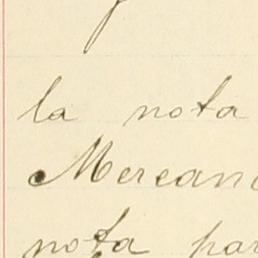 la nota
Mercan
nota par